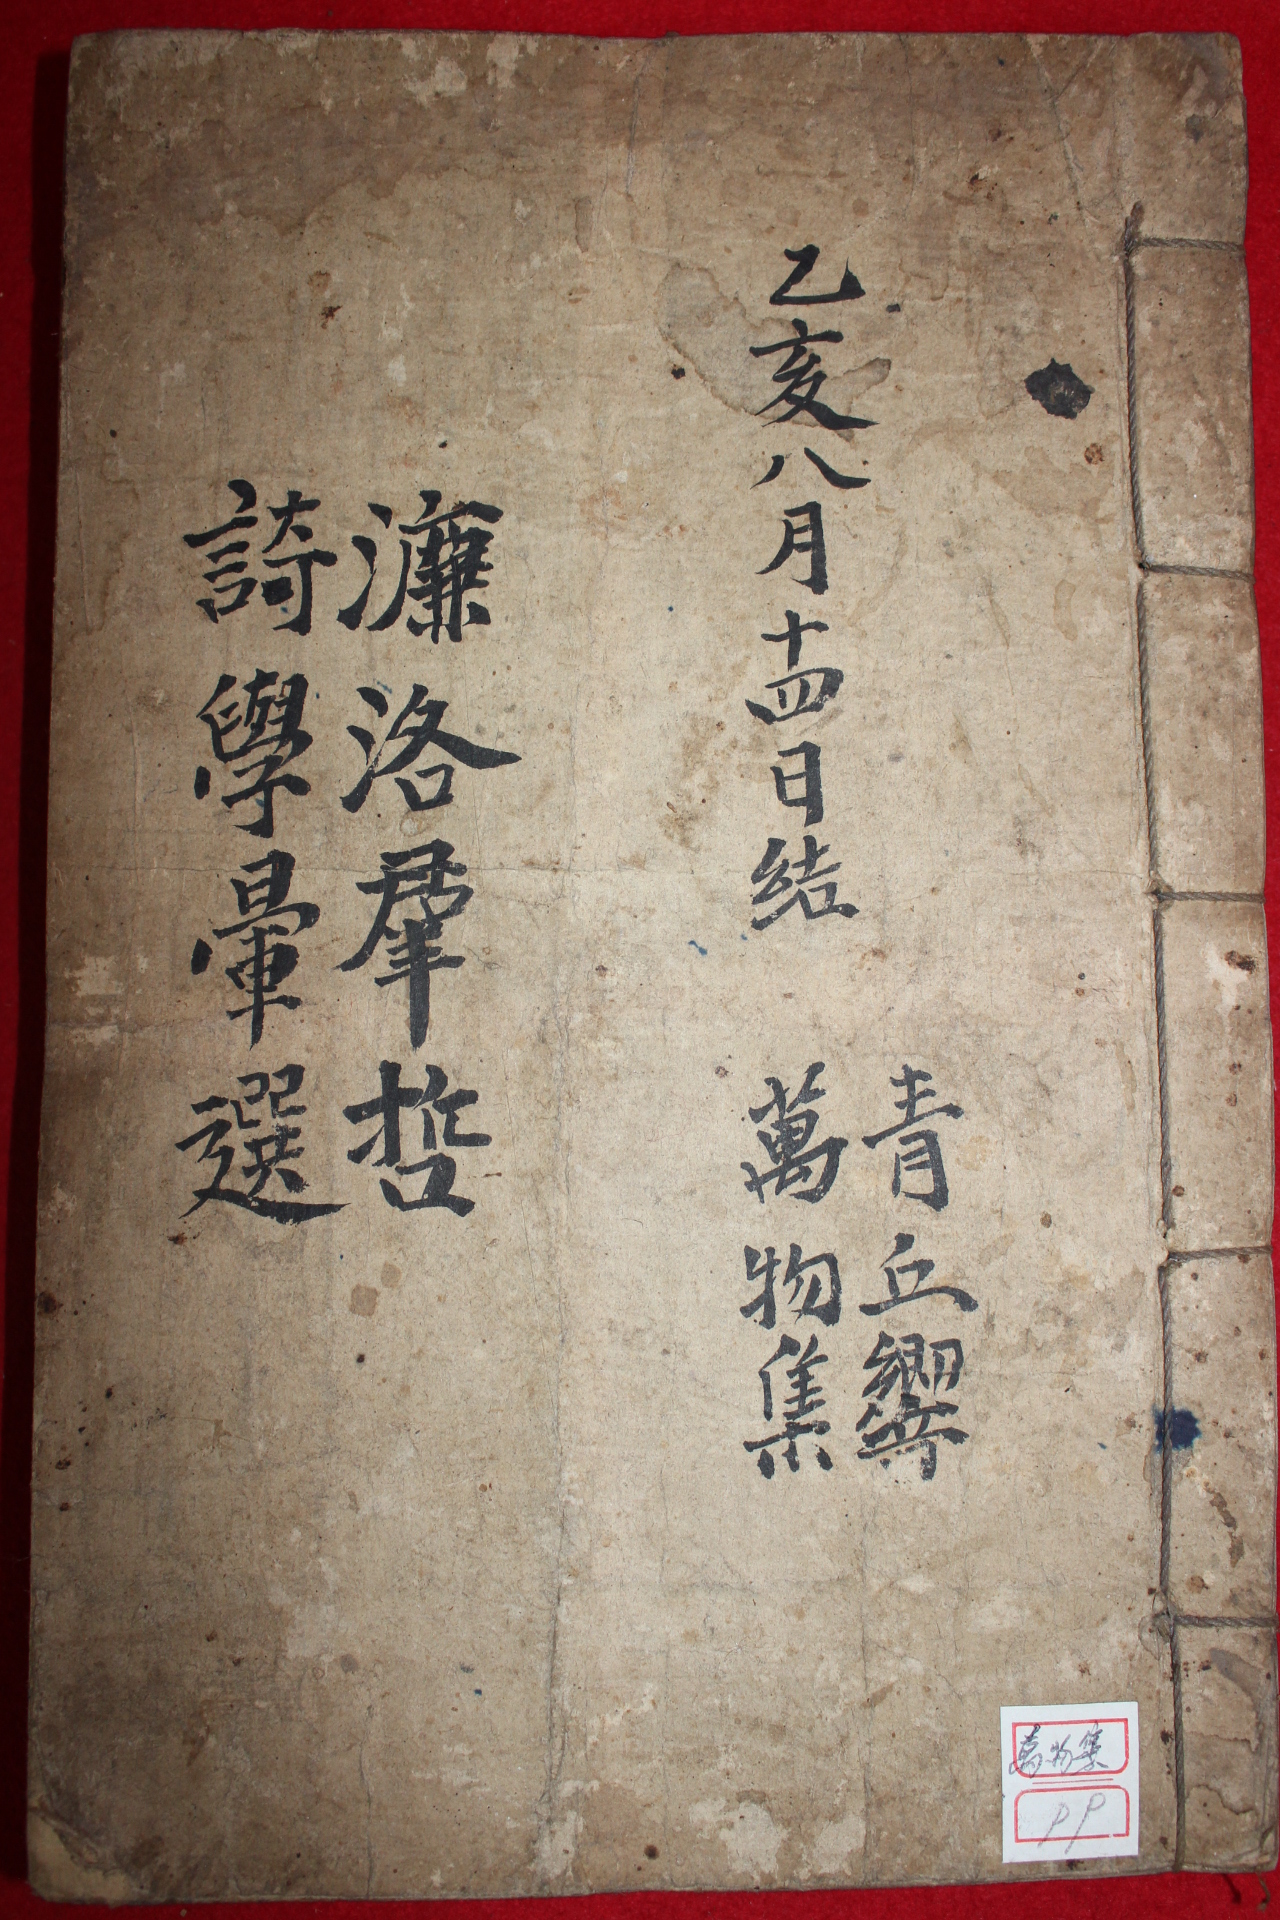 青丘響
乙亥八月十四日結
萬物集
濂洛羣哲
學暈選
萬物集
PP